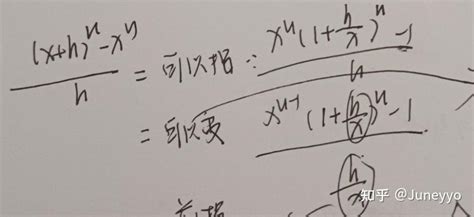 ((x+h)^n - x^n)/h = 可以担: (x^n(1+h/x)^n - 1)/h
= 可以变 (x^(n-1)(1+(h/x))^n - 1)/(h/x)
知乎 @Juneyyo